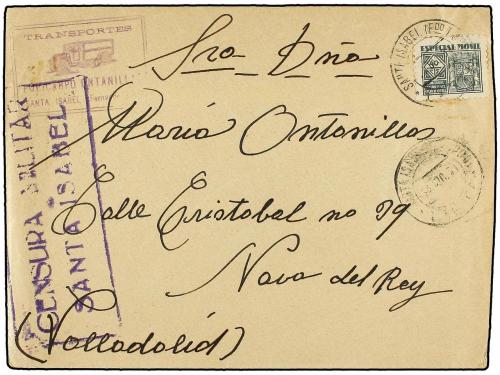 TRANSPORTES
ONTANILLA
SANTA ISABEL
CENSURA MILITAR
SANTA ISABEL
ESPECIAL MOVIL
SANTA ISABEL
Sra Dña
María Ontanillas
Calle Cristobal no 29
Nava del Rey
(Valladolid)